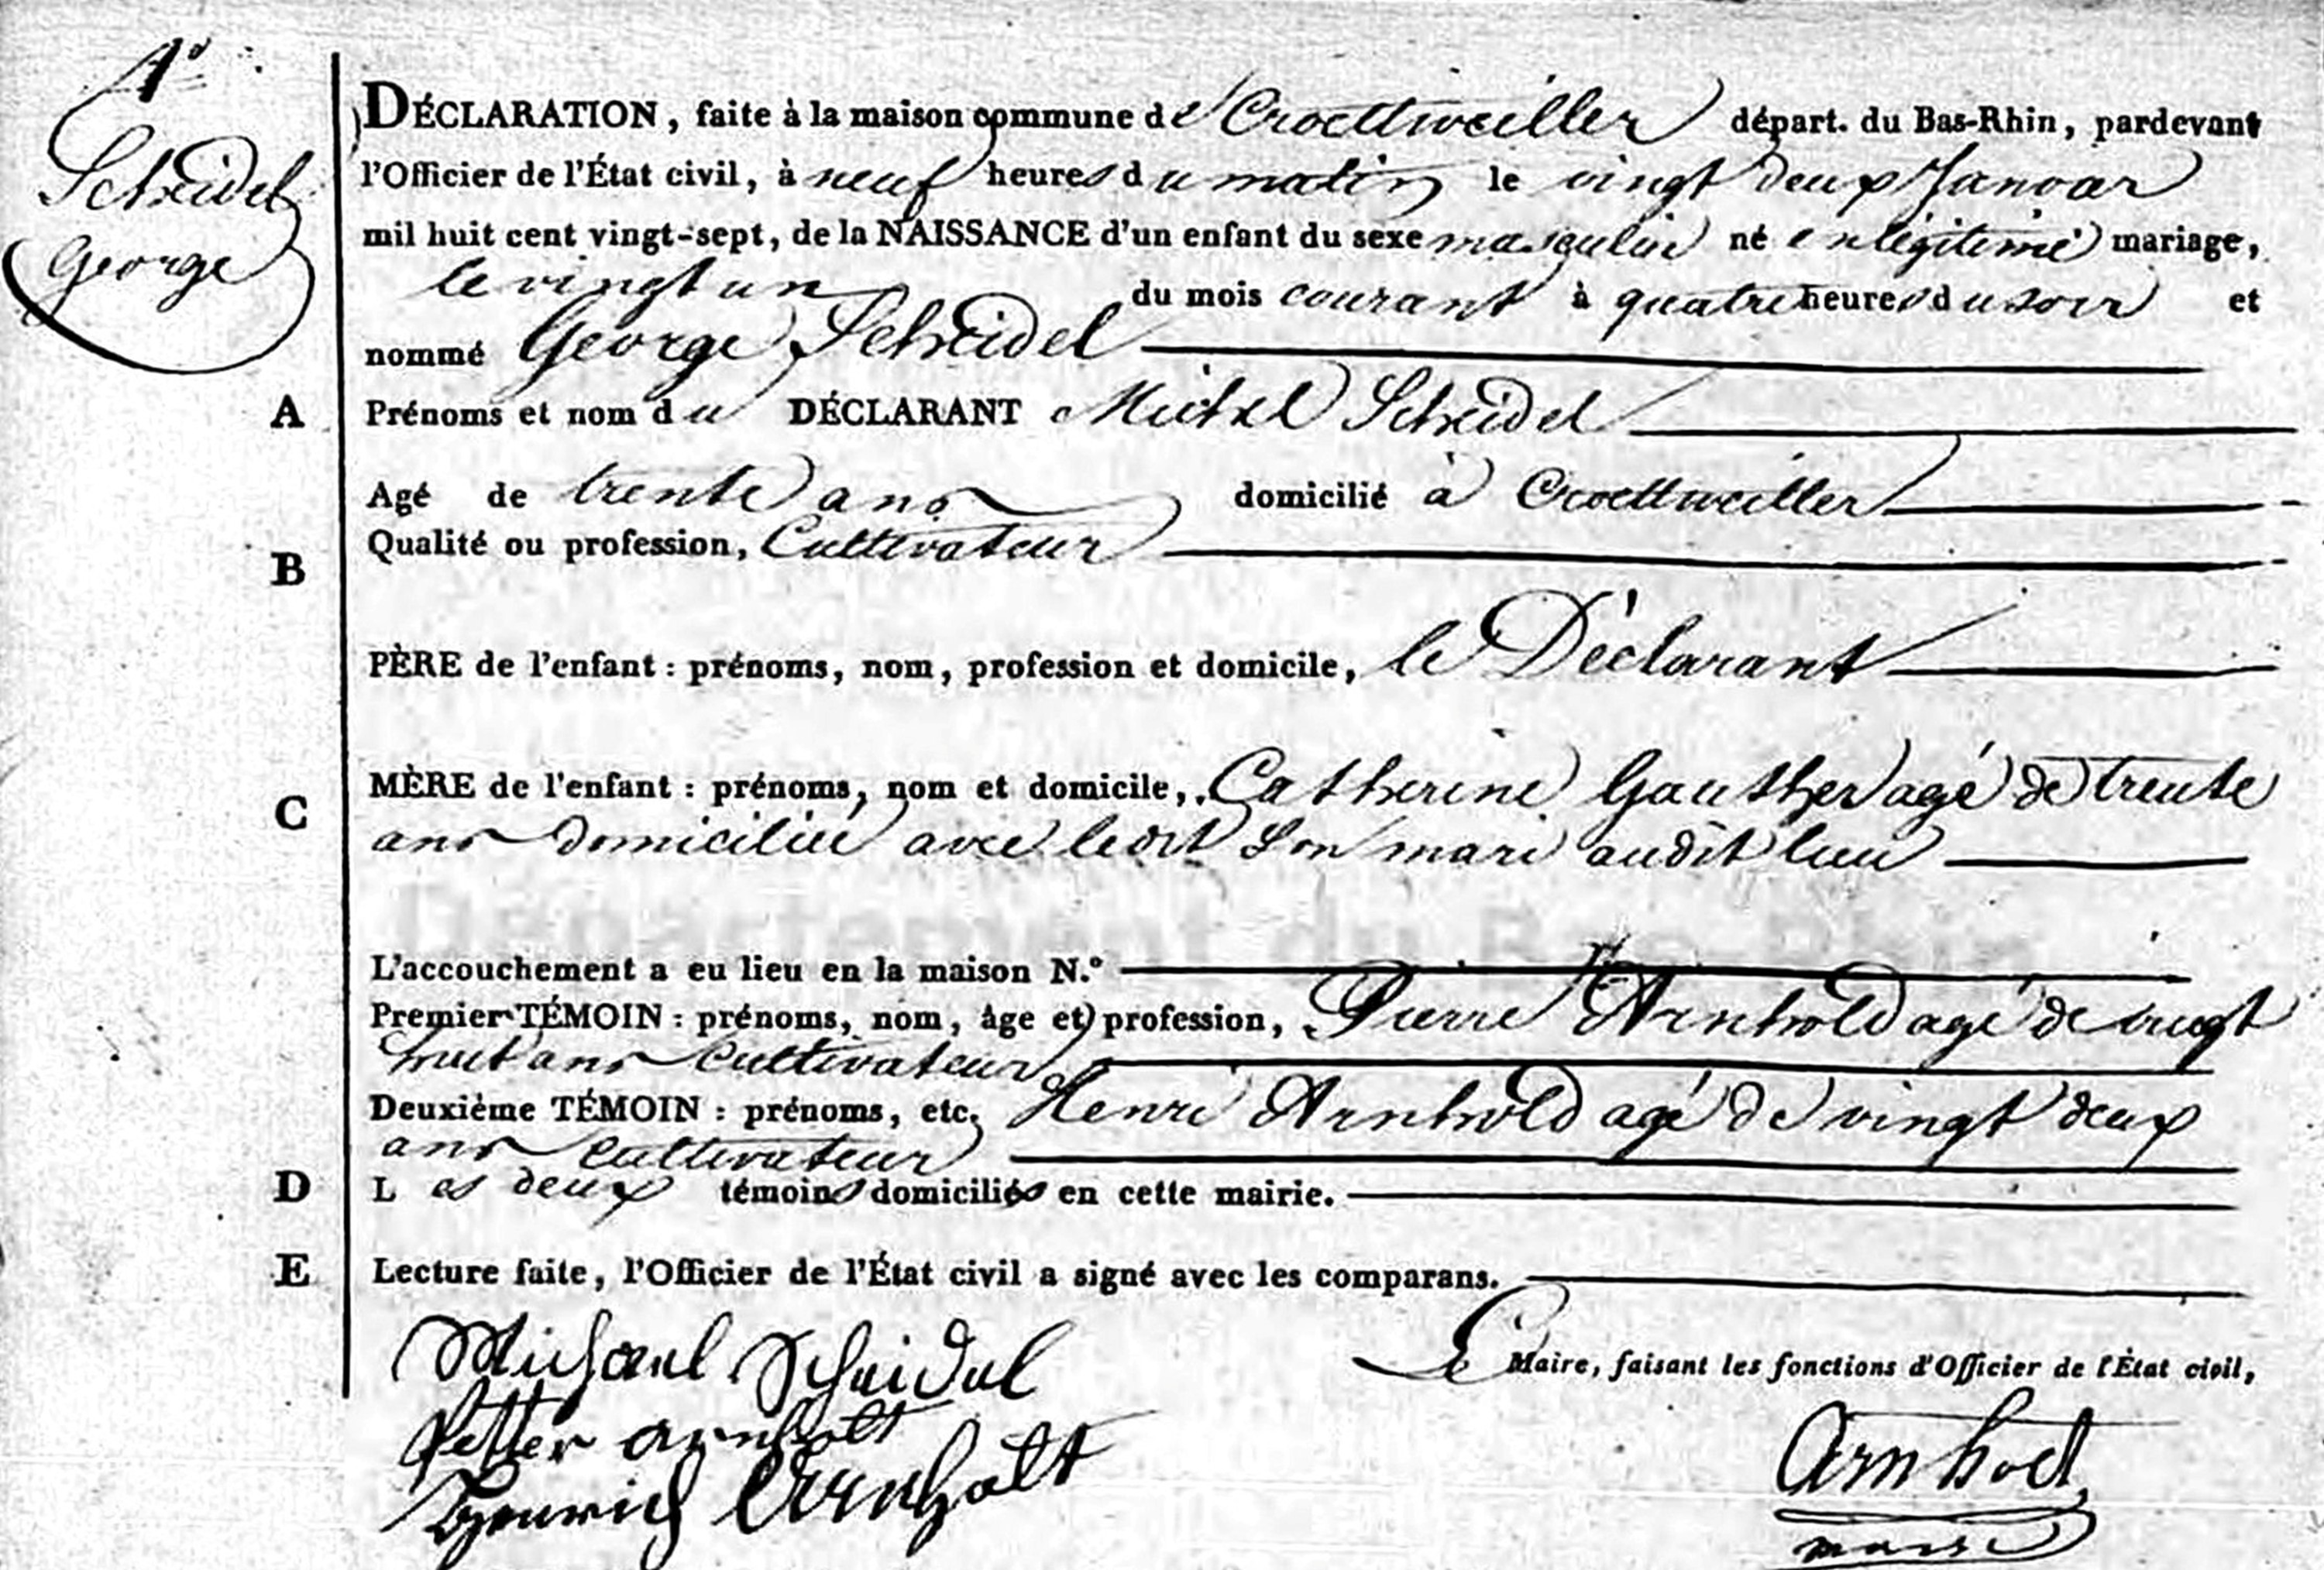 Scheidel
George
DÉCLARATION, faite à la maison commune de Croettweiller départ. du Bas-Rhin, pardevant
l'Officier de l'État civil, à neuf heures du matin le vingt deux Janvar
mil huit cent vingt-sept, de la NAISSANCE d'un enfant du sexe masculin né en légitime mariage,
le vingt un du mois courant à quatre heures du soir et
nommé George Scheidel
A Prénoms et nom du DÉCLARANT Michel Scheidel
Agé de trente ans domicilié à Croettweiller
Qualité ou profession, Cultivateur
B
PÈRE de l'enfant : prénoms, nom, profession et domicile, le Déclarant
MÈRE de l'enfant : prénoms, nom et domicile, Catherine Gauther agé de trente
C ans domiciliée avec ledit son mari audit lieu
L'accouchement a eu lieu en la maison N.°
Premier TÉMOIN : prénoms, nom, âge et profession, Pierre Arnhold agé de vingt
huit ans Cultivateur
Deuxième TÉMOIN : prénoms, etc. Henri Arnhold agé de vingt deux
ans Cultivateur
D Les deux témoins domiciliés en cette mairie.
E Lecture faite, l'Officier de l'État civil a signé avec les comparans.
Michael Scheidel
Le Maire, faisant les fonctions d'Officier de l'État civil,
Petter Arnholt
Henrich Arnholt
Arnholt
maire